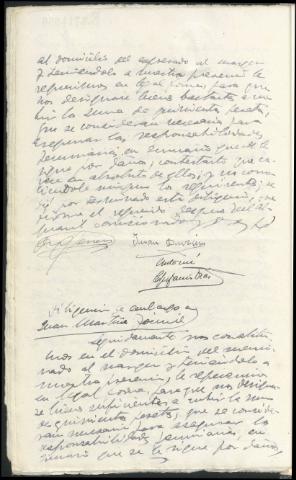 al domicilio del expresado al margen
y teniéndole a nuestra presencia le
requerimos en legal forma para que
nos designase bienes bastantes a cu-
brir la suma de quinientas pesetas
que se consideran necesarias para
asegurar las responsabilidades
dimanadas en sumario que se le
sigue por daños, contestando que ca-
rece en absoluto de ellos, y no cono-
ciéndole ninguno la requirente, se
dió por terminada esta diligencia, que
firma el requerido después del
Juan
Antonio
Diligencia de embargo a
Juan Martín
Seguidamente nos constitui-
mos en el domicilio del mencio-
nado al margen y teniéndole a
nuestra presencia, le requerimos
en legal forma para que nos designa-
se bienes suficientes a cubrir la suma
de quinientas pesetas, que se conside-
ran necesarias para asegurar las
responsabilidades dimanadas, en
sumario que se le sigue por daños